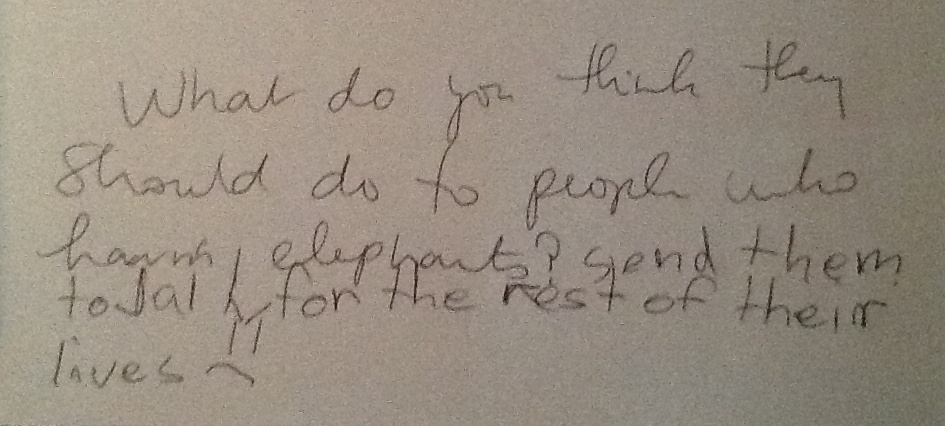 What do you think they
should do to people who
harm elephants? send them
to Jail for the rest of their
lives